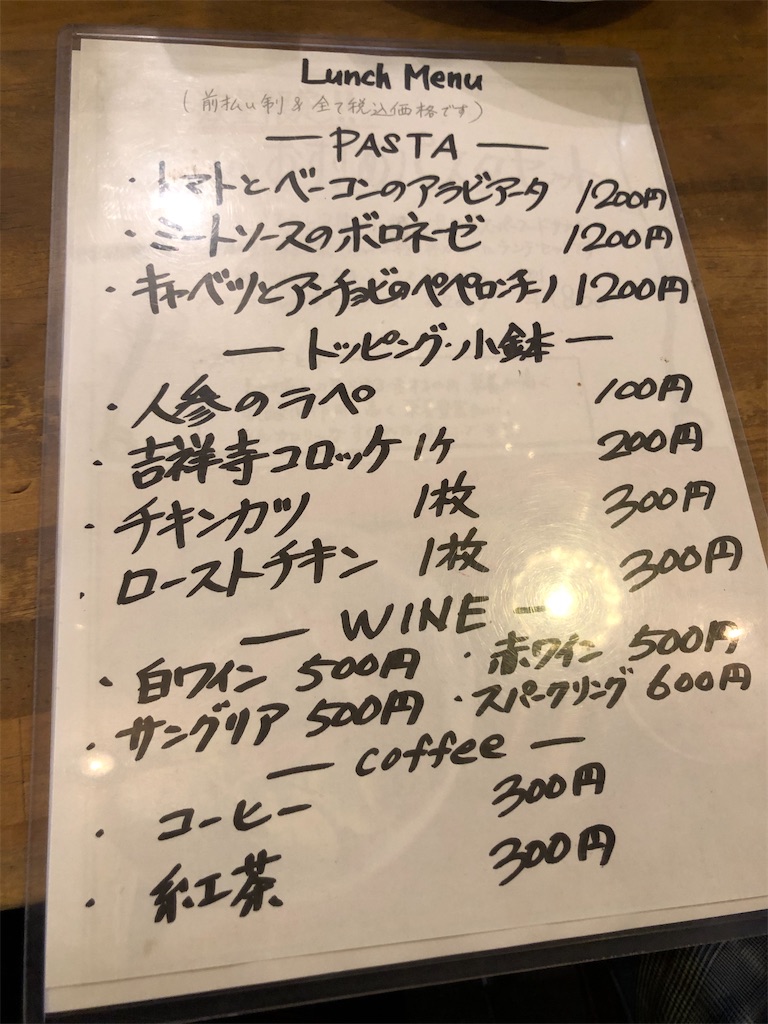 Lunch Menu
(前払い制&全て税込価格です)
— PASTA —
・トマトとベーコンのアラビアータ 1200円
・ミートソースのボロネーゼ 1200円
・キャベツとアンチョビのペペロンチーノ 1200円
— トッピング・小鉢 —
・人参のラペ 100円
・吉祥寺コロッケ 1ケ 200円
・チキンカツ 1枚 300円
・ローストチキン 1枚 300円
— WINE —
・白ワイン 500円 ・赤ワイン 500円
・サングリア 500円 ・スパークリング 600円
— coffee —
・コーヒー 300円
・紅茶 300円